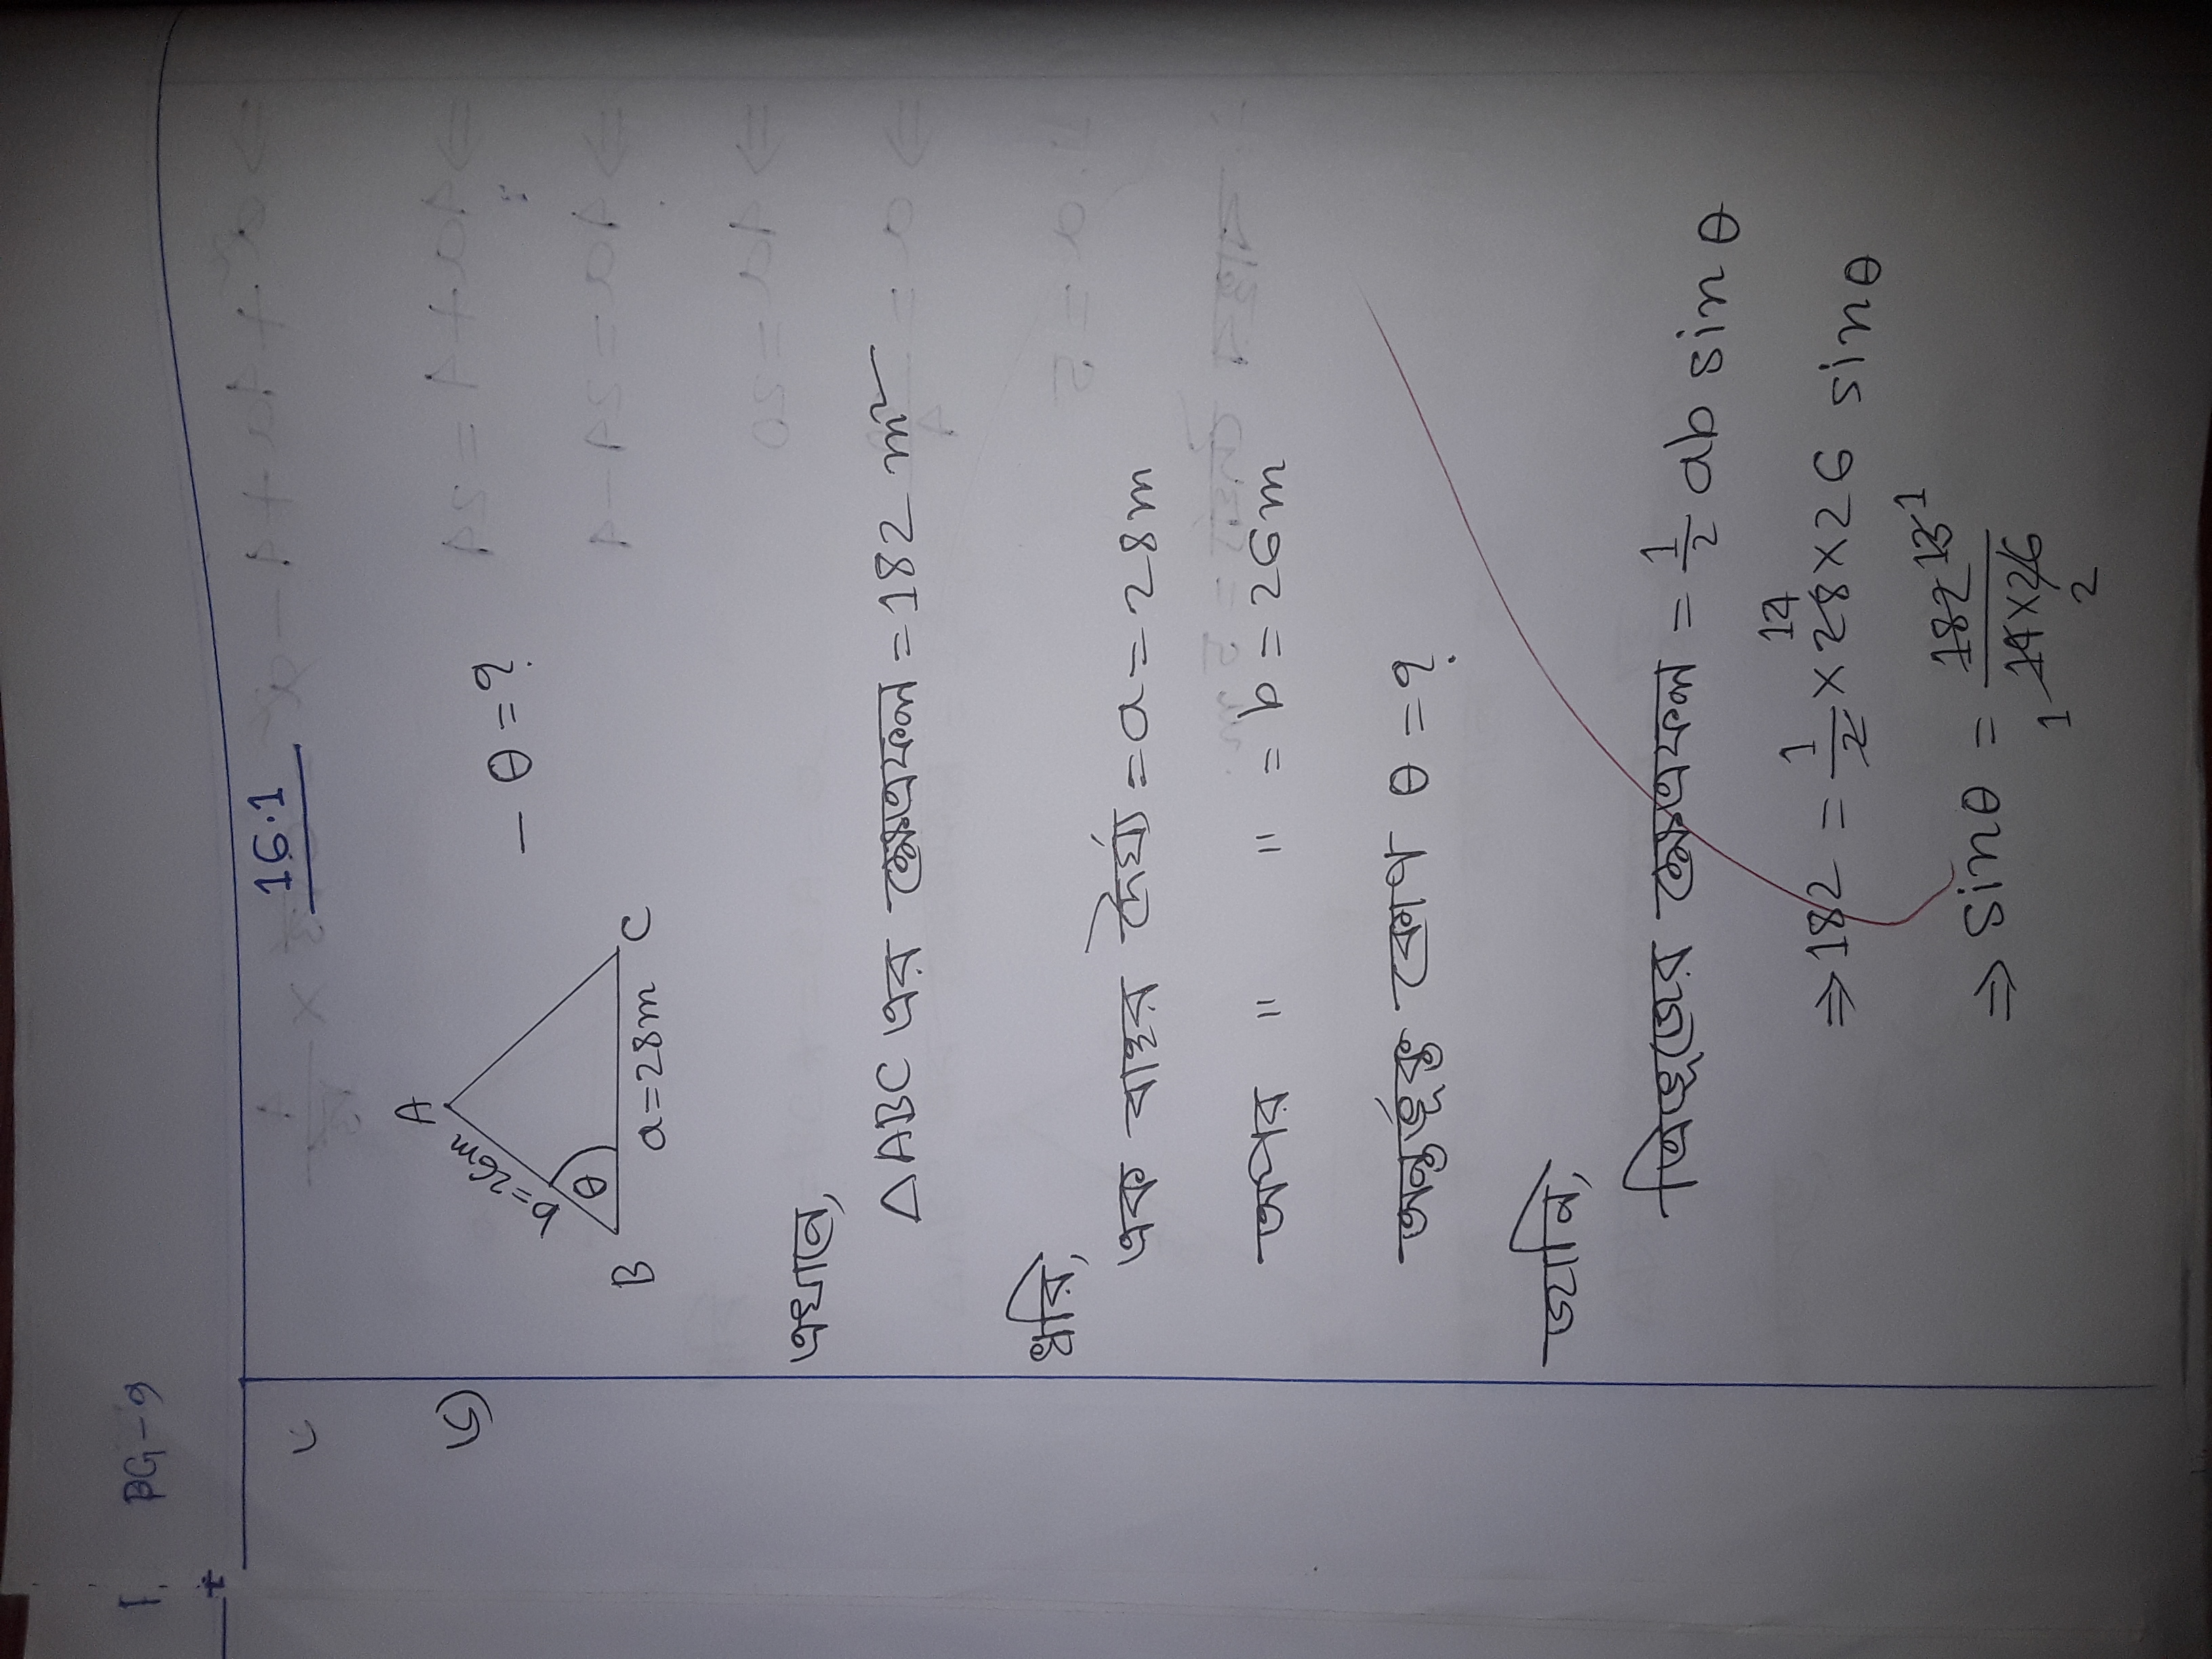 1. PG-9
16.1
৬)
A
b=26m
θ
B
a=28m
C
- θ = ?
এখানে,
△ABC এর ক্ষেত্রফল = 182 m²
ধরি,
এক বাহুর দৈর্ঘ্য = a = 28m
অপর " " = b = 26m
অন্তর্ভূক্ত কোণ θ = ?
জানি,
ত্রিভূজের ক্ষেত্রফল = 1/2 ab sin θ
14
⇒ 182 = 1/2 × 28 × 26 sin θ
13 1
⇒ sin θ = 182/14×26
1
2